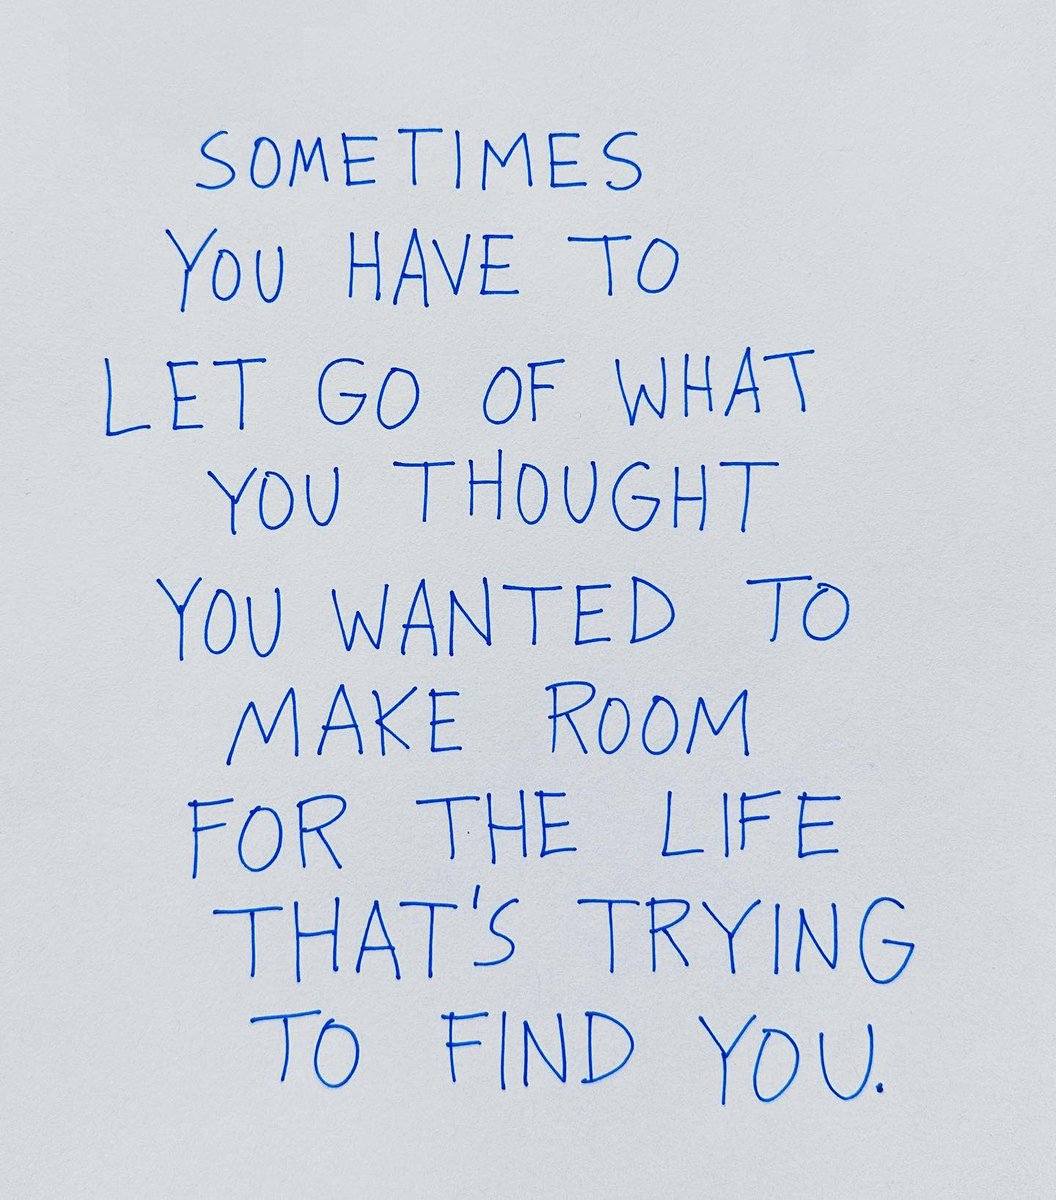 SOMETIMES
YOU HAVE TO
LET GO OF WHAT
YOU THOUGHT
YOU WANTED TO
MAKE ROOM
FOR THE LIFE
THAT'S TRYING
TO FIND YOU.